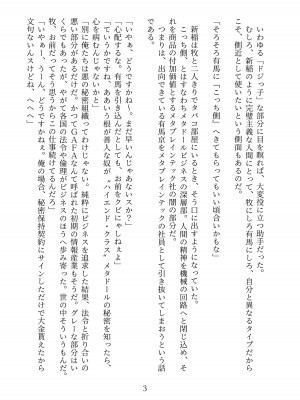 いわゆる「ドジっ子」な部分に目を瞑れば、大変役に立つ助手だった。
むしろ、新稲のように完璧主義な人間にとって、牧にしろ有馬にしろ、自分と異なるタイプだから
こそ、側近として使いたいという側面もあるのだ。
「そろそろ有馬に『こっち側』へきてもらってもいい頃合いかもな」
である。
新稲は牧と二人きりタバコ部屋でいるとき、そう口に出すようになっていた。
こっち側、とはすなわちメタドールビジネスの深層部。人間の精神を機械の回路へと閉じ込め、そ
れを商品の付加価値とするメタブレインテックの闇の部分だ。
つまりは、出向できている有馬京をメタブレインテックの社員として引き抜いてしまおうという話
である。
「いやぁ、どうですかねー。まだ早いんじゃあないスかァ?」
「心配するな。有馬を引き込んだとしても、お前をクビにゃしねぇよ」
「ていうかですね、あああいう根が善人な奴が〝ハイエンド・クラス〟メタドールの秘密を知ったら、
心を病むんじゃないかと」
「別に俺たちは悪の秘密組織ってわけじゃない。純粋にビジネスを追求した結果、法令と折り合いの
悪い部分があるだけだ。かつてGAFAなんて呼ばれた初期の情報産業もそうだ。グレーな部分はい
くらでもあったが、やがて各国の法令や倫理がビジネスのほうへ歩み寄った。世の中そういうもんだ。
牧、お前だってそう思うからこの仕事続けてるんだろ」
「いやぁー、うーん、どうですかねぇ。俺の場合、秘密保持契約にサインしただけで大金貰えたから
文句ないんスけどね、へへへ」
3